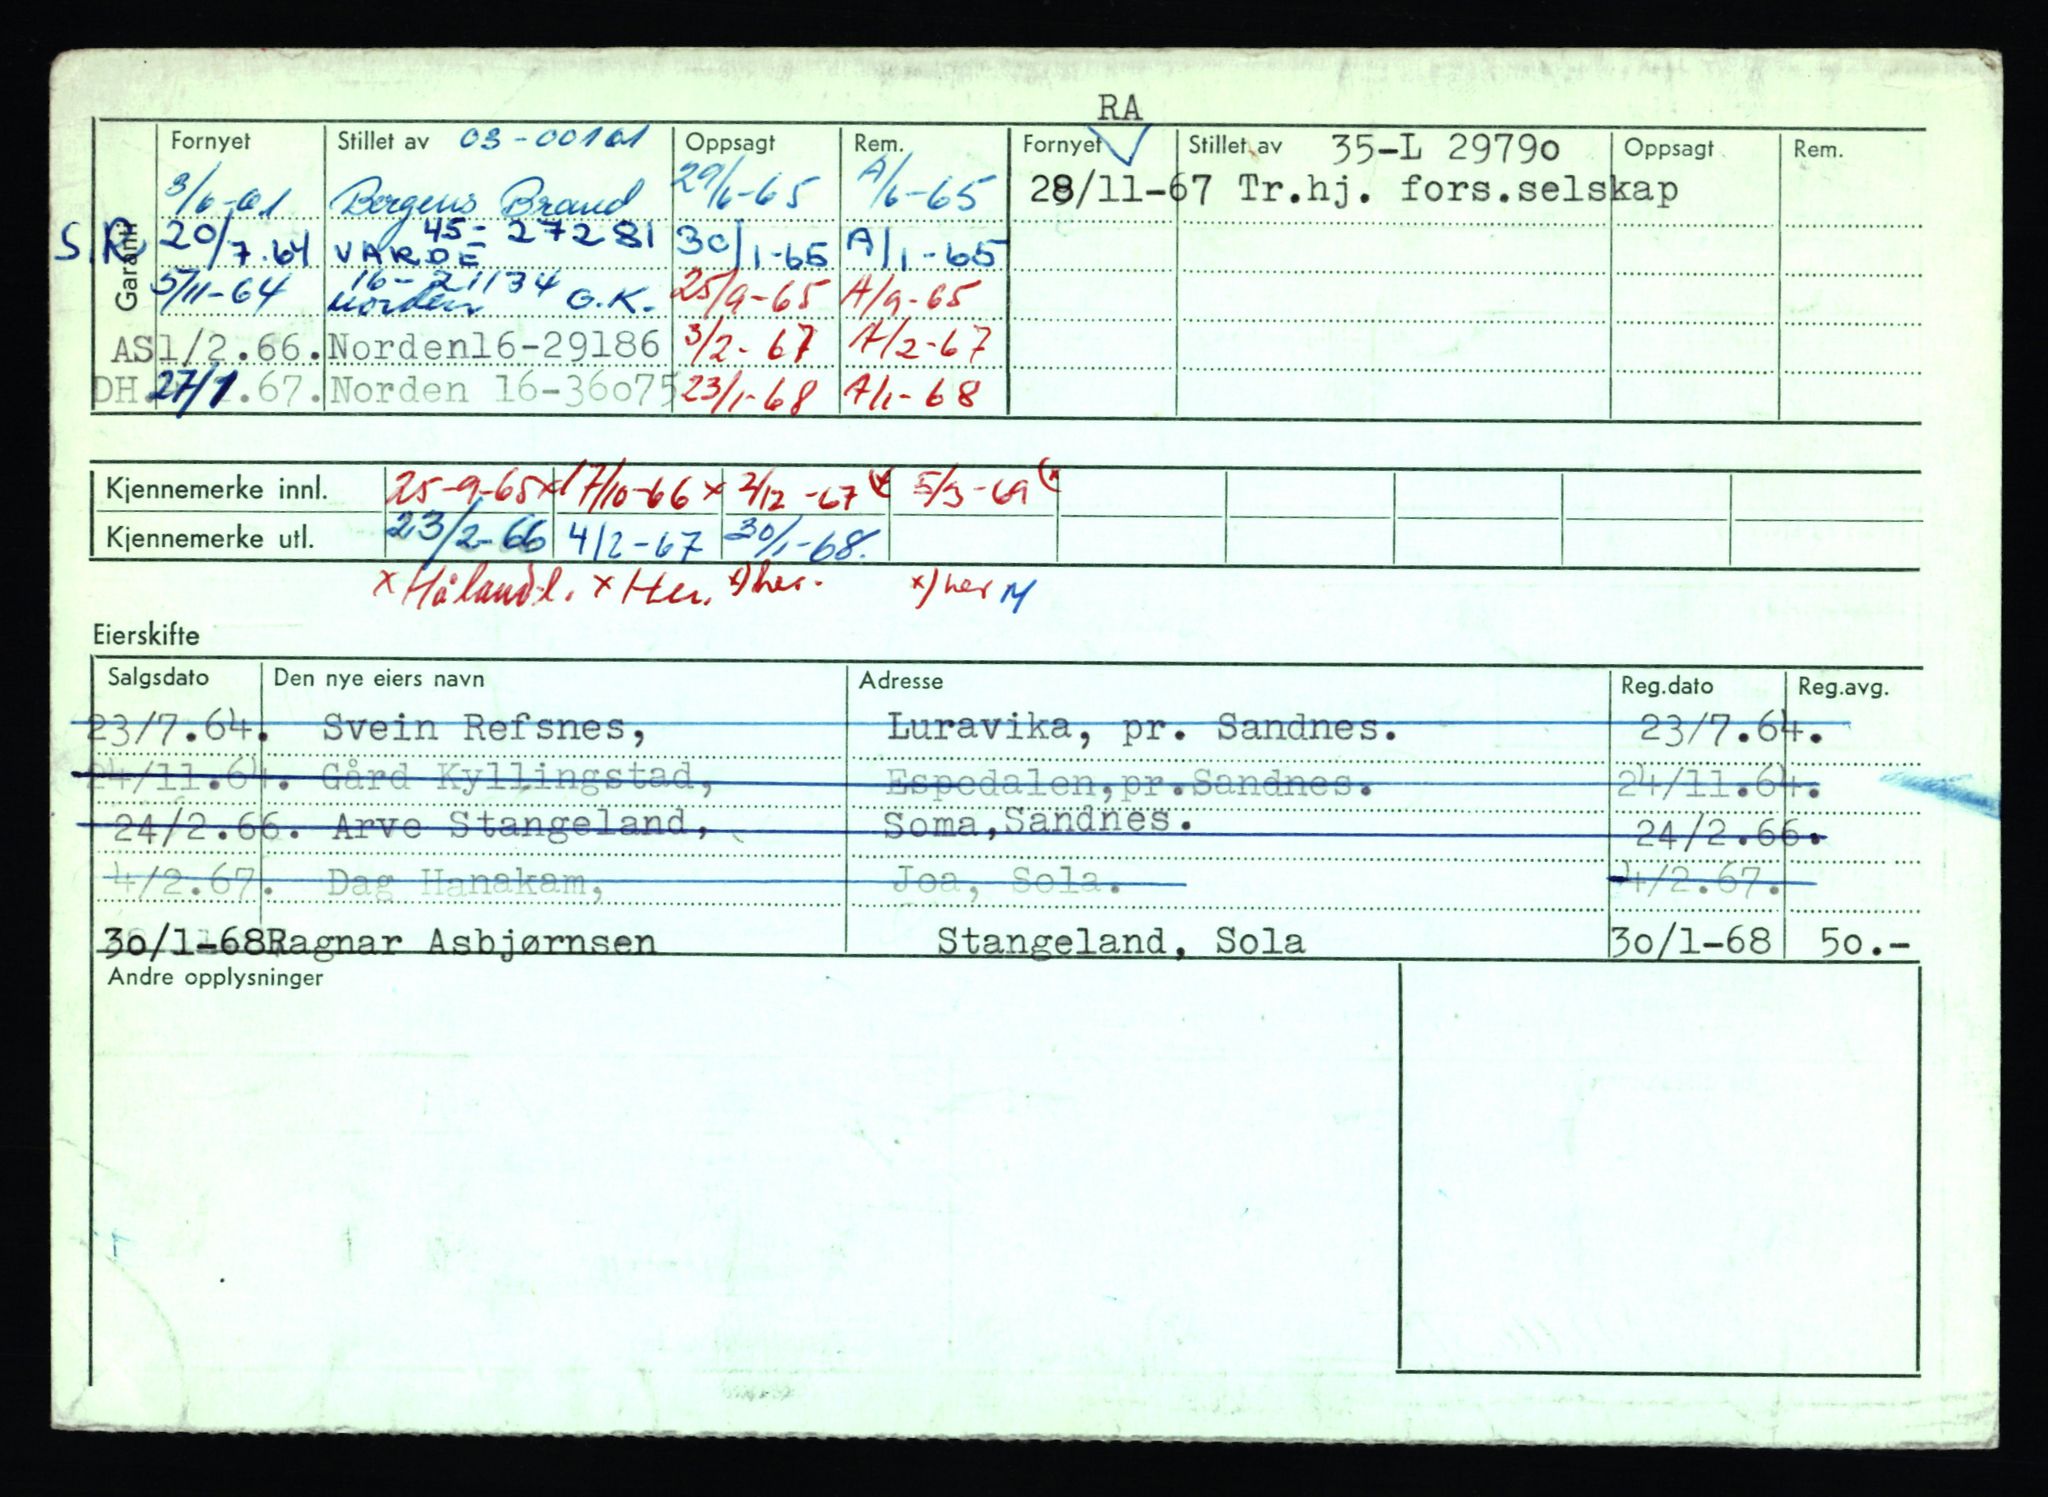 RA
Fornyet Stillet av 03-00101 Oppsagt Rem. Fornyet Stillet av 35-L 2979o Oppsagt Rem.
Garanti
3/6-61 Bergens Brand 29/6-65 A/6-65 28/11-67 Tr.hj. fors.selskap
S.R. 20/7.64 VARDE 45-27281 30/1-65 A/1-65
5/11-64 Norden 16-21134 G.K. 25/9-65 A/9-65
AS 1/2.66. Norden16-29186 3/2-67 A/2-67
DH. 27/1.67. Norden 16-36o75 23/1-68 A/1-68
Kjennemerke innl. 25-9-65x 17/10-66 x 2/12-67 x 5/3-69 (x
Kjennemerke utl. 23/2-66 4/2-67 30/1-68.
x Håland l. x Her. x) her. x) her M
Eierskifte
Salgsdato Den nye eiers navn Adresse Reg.dato Reg.avg.
23/7.64. Svein Refsnes, Luravika, pr. Sandnes. 23/7.64.
24/11.64. Gård Kyllingstad, Espedalen,pr.Sandnes. 24/11.64.
24/2.66. Arve Stangeland, Soma,Sandnes. 24/2.66.
4/2.67. Dag Hanakam, Joa, Sola. 4/2.67.
30/1-68 Ragnar Asbjørnsen Stangeland, Sola 30/1-68 50.-
Andre opplysninger